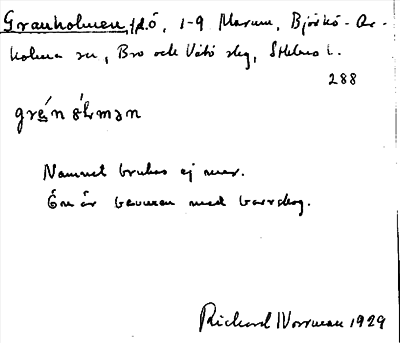 Granholmen, f.d.ö, 1-9 Marum, Björkö-Ar-
holma sn, Bro och Vätö skg, Sthlms l.
288
grén ål̀mən
Namnet brukas ej mer.
Ön är bevuxen med barrskog.
Richard Norrman 1929